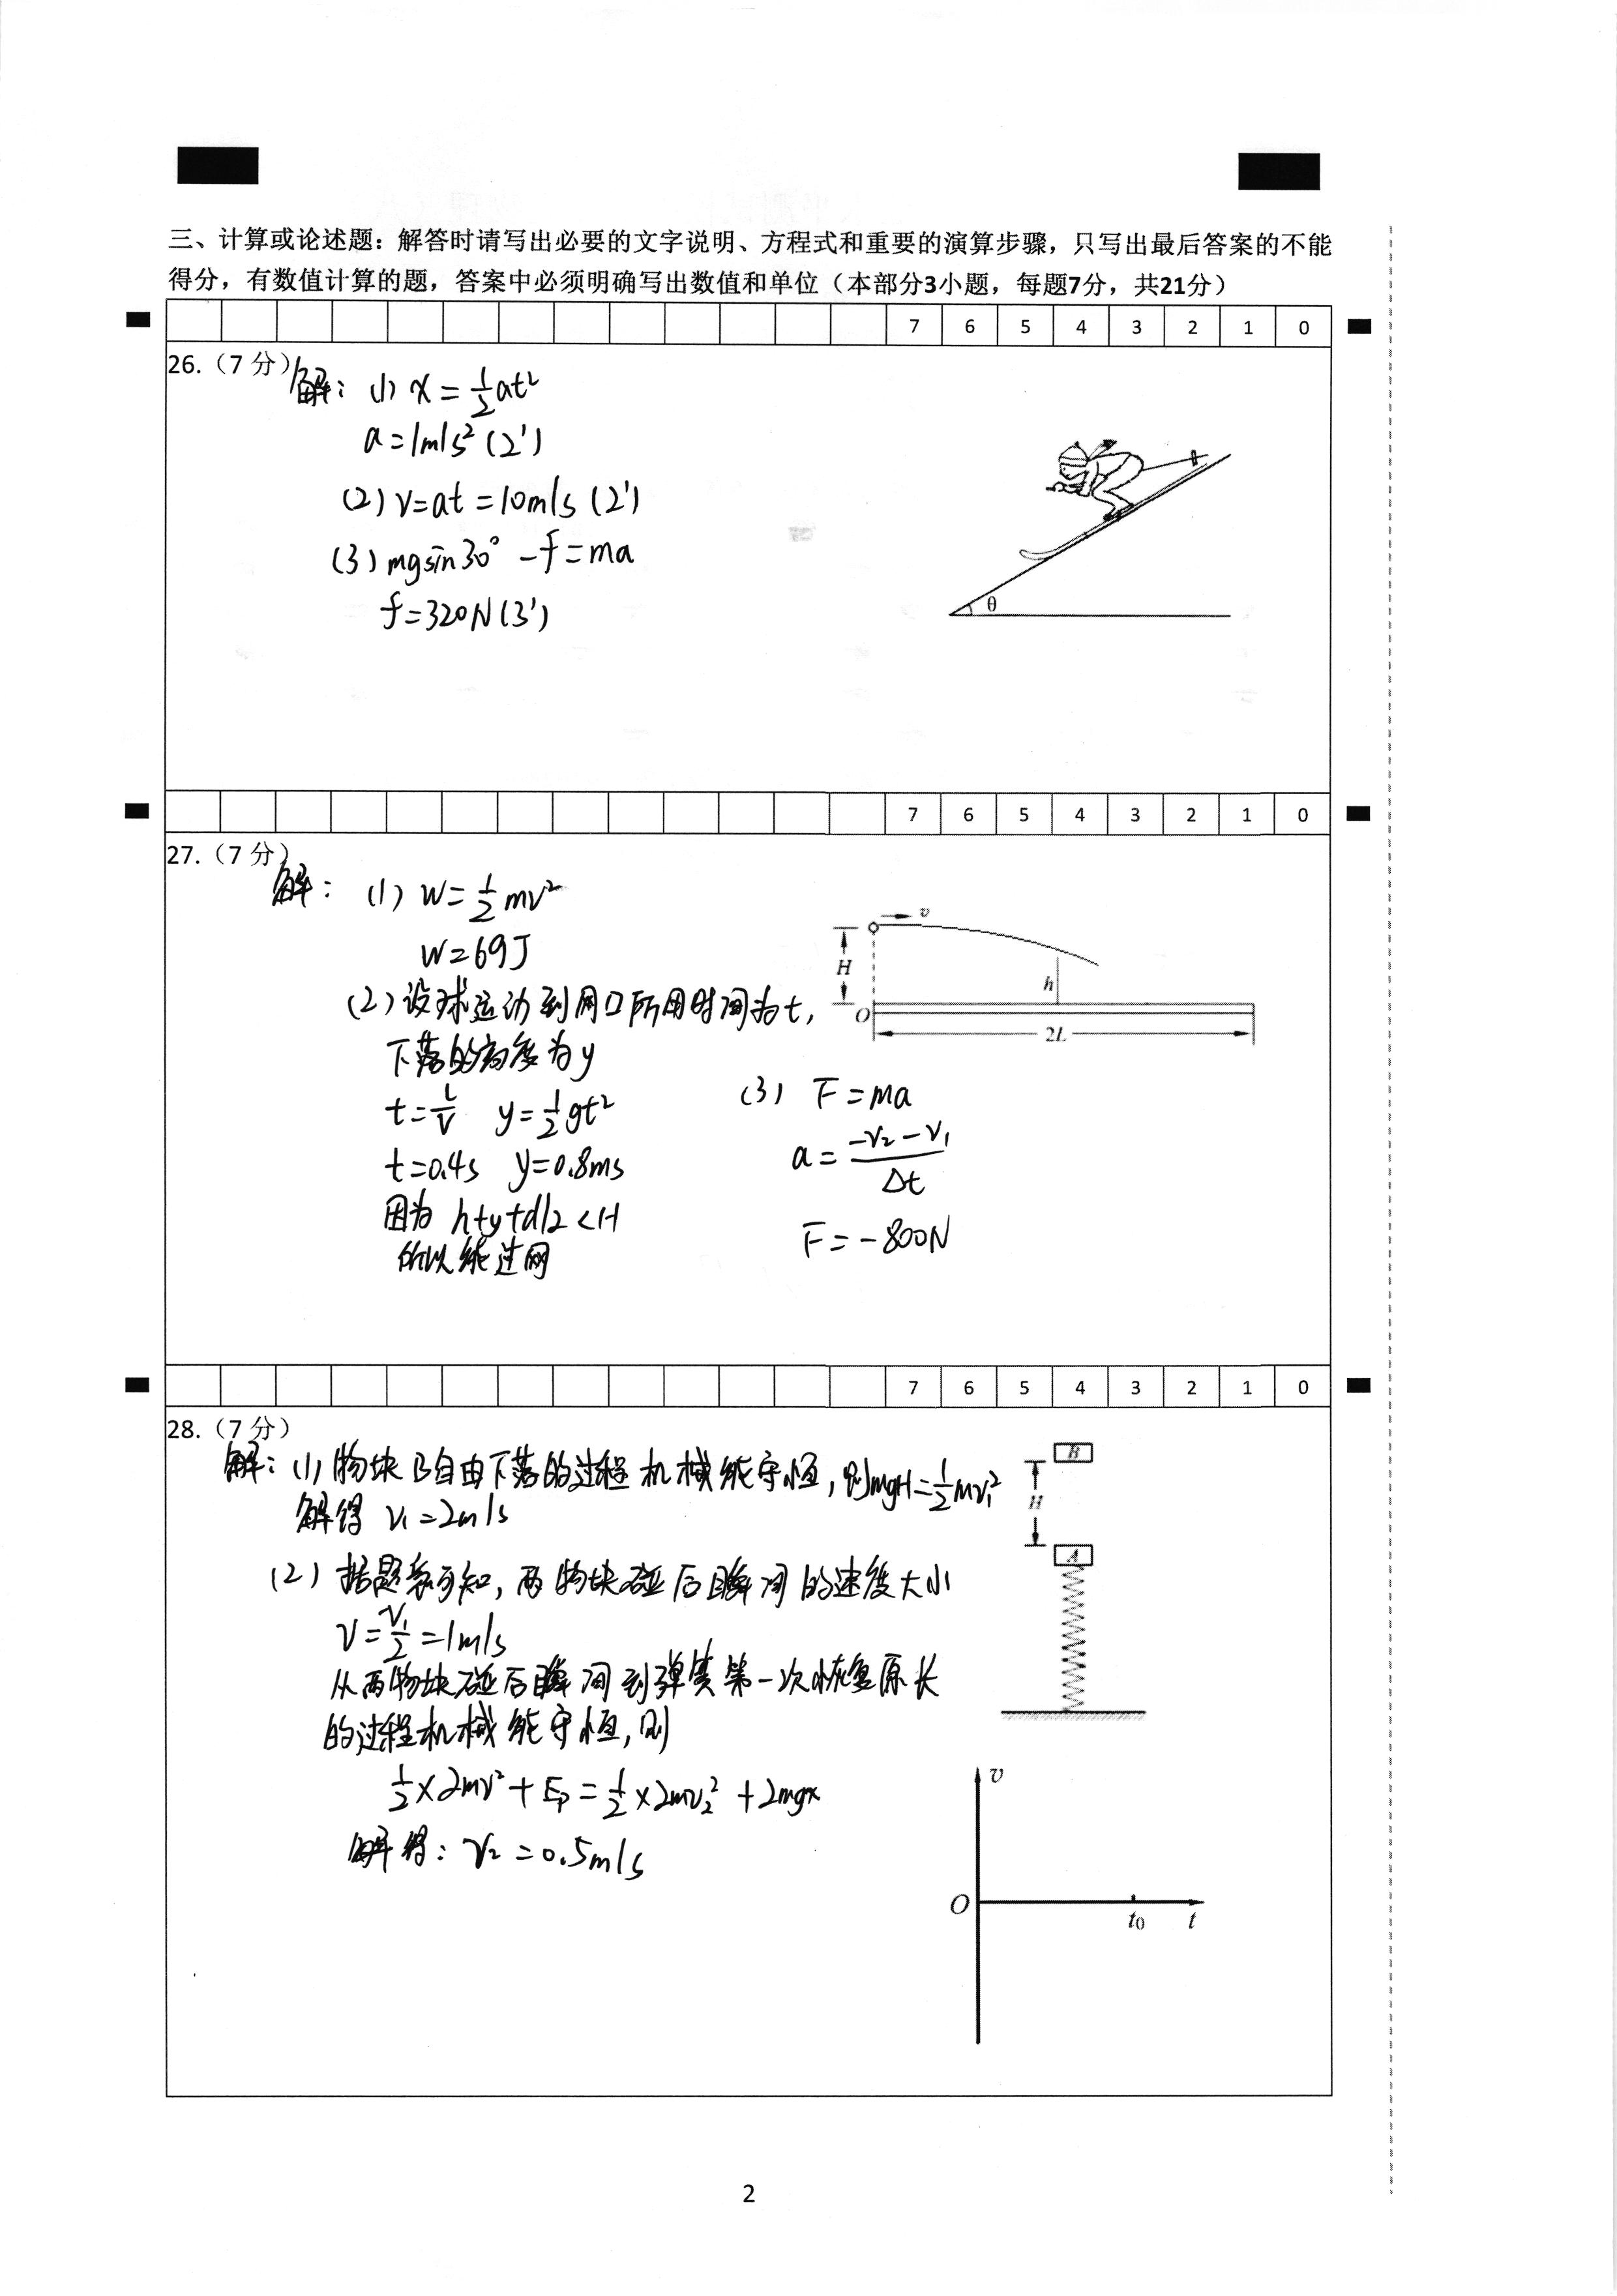 三、计算或论述题：解答时请写出必要的文字说明、方程式和重要的演算步骤，只写出最后答案的不能
得分，有数值计算的题，答案中必须明确写出数值和单位（本部分3小题，每题7分，共21分）
7 6 5 4 3 2 1 0
26.（7 分）
解：(1) x = 1/2 at²
a = 1m/s² (2')
(2) v = at = 10m/s (2')
(3) mgsin30° - f = ma
f = 320N (3')
θ
7 6 5 4 3 2 1 0
27.（7 分）
解：(1) W = 1/2 mv²
W = 69J
(2) 设球运动到网口所用时间为t,
下落的高度为y
t = L/V y = 1/2 gt²
t = 0.4s y = 0.8ms
因为 h+y+d/2 < H
所以能过网
v
H
h
O
2L
(3) F = ma
a = (-v₂ - v₁)/Δt
F = -800N
7 6 5 4 3 2 1 0
28.（7 分）
解：(1) 物块B自由下落的过程机械能守恒, 则mgH = 1/2 mv₁²
解得 v₁ = 2m/s
(2) 据题意可知, 两物块碰后瞬间的速度大小
v = v₁/2 = 1m/s
从两物块碰后瞬间到弹簧第一次恢复原长
的过程机械能守恒, 则
1/2 × 2mv² + Ep = 1/2 × 2mv₂² + 2mgx
解得：v₂ = 0.5m/s
B
H
A
v
O
t₀
t
2